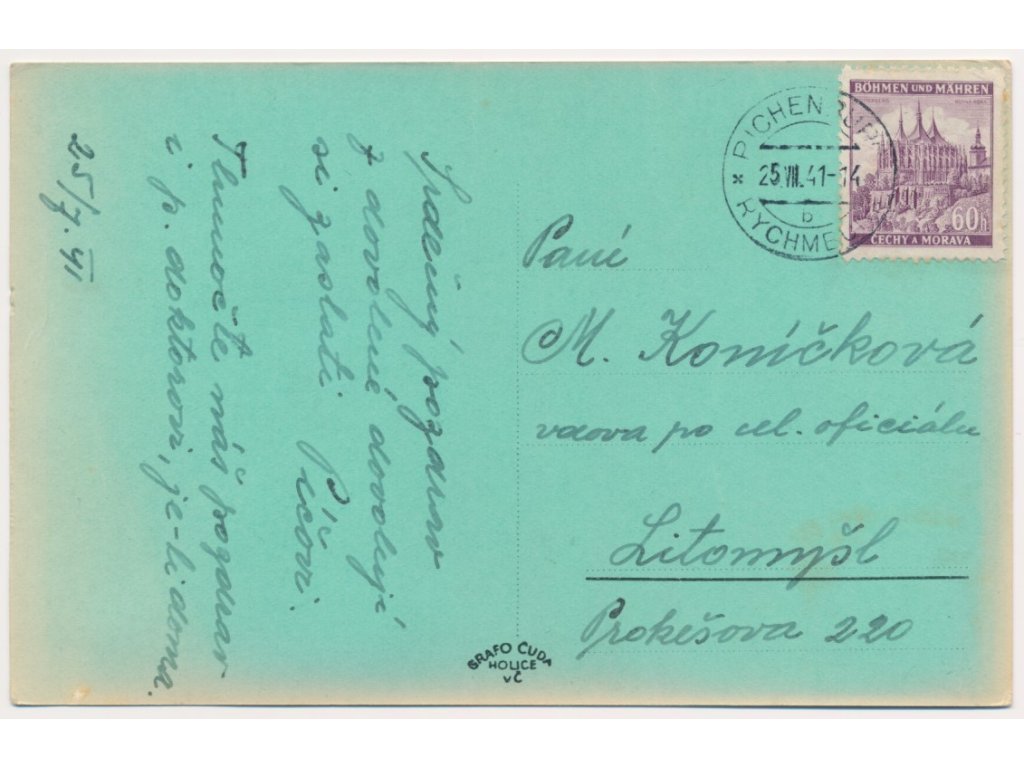 25/7. 41
Srdečný pozdrav
z dovolené dovoluji
si zaslati. Píčovi.
Tlumočte náš pozdrav
i p. doktorovi, je-li doma.
RICHENBUR
25.VII.41-14
b
RYCHM
BÖHMEN UND MÄHREN
60h
ČECHY A MORAVA
Paní
M. Koníčková
vdova po cel. oficiálu
Litomyšl
Prokešova 220
GRAFO ČUDA
HOLICE
v Č